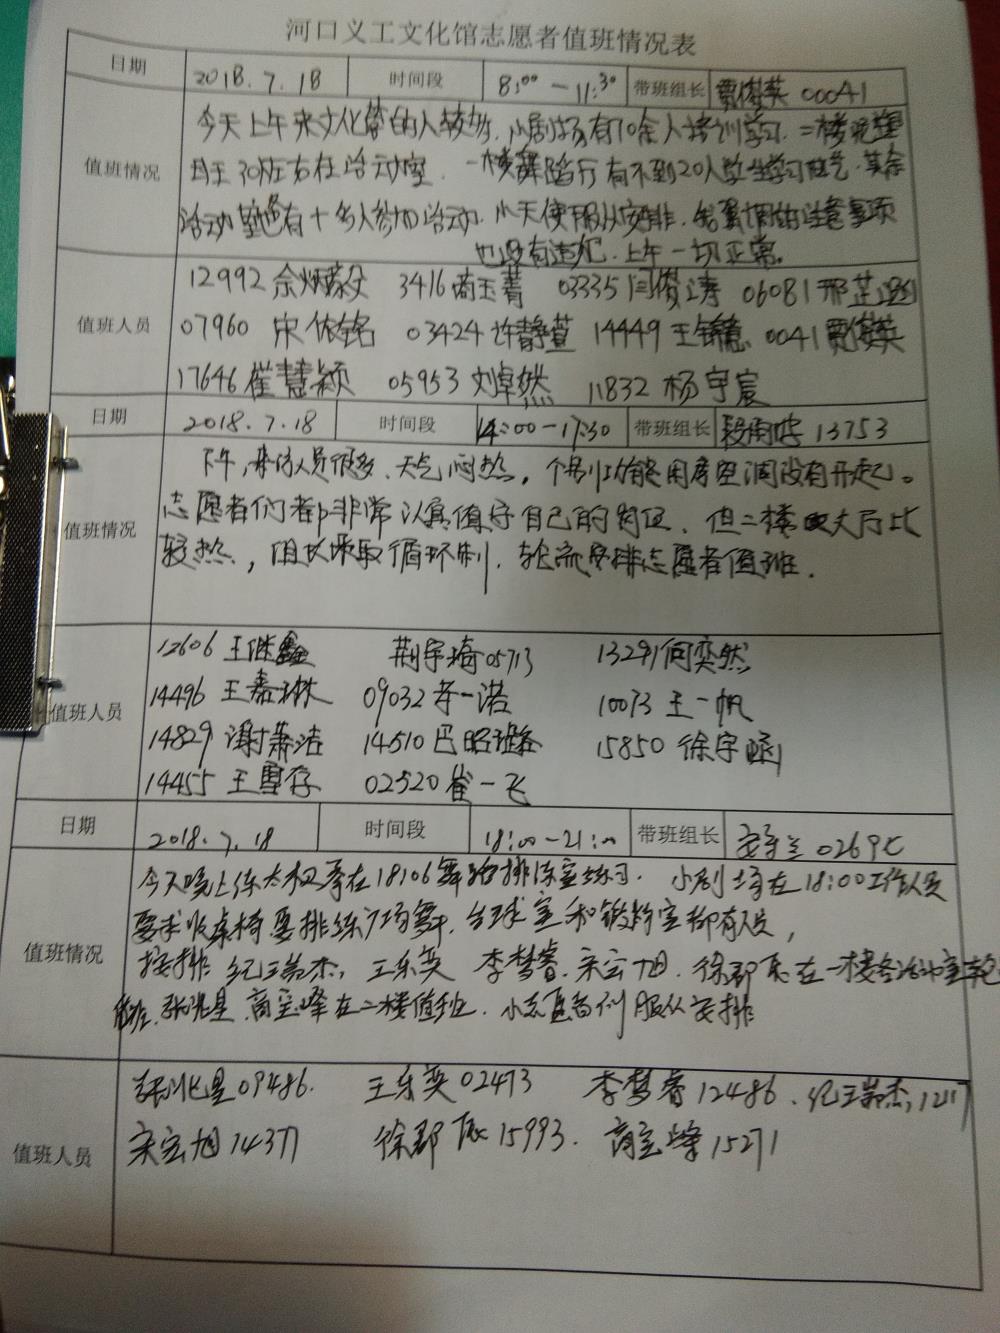 河口义工文化馆志愿者值班情况表
日期 2018.7.18 时间段 8:00—11:30 带班组长 贾俊英 00041
值班情况
今天上午来文化馆的人较多,小剧场有70余人培训学习.二楼
30位左右在活动室.一楼舞蹈厅有不到20人学生学习 其余
活动 有十多人参加活动.小天使服从安排. 强调的注意事项
也没有违犯.上午一切正常。
值班人员
12992 3416 商玉菁 03335 闫俊涛 06081 邢芷
07960 宋依铭 03424 许静萱 14449 王锦 0041 贾俊英
17646 崔慧颖 05953 刘卓然 11832 杨宇宸
日期 2018.7.18 时间段 14:00—17:30 带班组长 段 13753
值班情况
下午,来的人员很多、天气闷热,个别功能用房空调没有开起。
志愿者们都非常认真值守自己的岗位.但二楼 大厅比
较热,因此采取循环制.轮流安排志愿者值班.
值班人员
12606 王继鑫 荆宇琦05713 13291何奕然
14496 王嘉琳 09032 李一诺 10073 王一帆
14829 谢萧洁 14510 巴 15850 徐宇涵
14455 王雪存 02520 崔一飞
日期 2018.7.18 时间段 18:00—21:00 带班组长
值班情况
今天晚上练太极拳在18106舞蹈排练室练习. 小剧场在18:00工作人员
要求收桌椅要排练广场舞.台球室和 室都有人员,
按排 纪玉尚杰, 王乐英 李梦睿.宋宏旭. 徐郡 在一楼各活动室轮
值班. 张兆星.商宝峰在二楼值班.小志愿者们服从安排
值班人员
张兆星09486. 王乐英02473 李梦睿12486、纪玉尚杰,1217
宋宏旭14377 徐郡 15993. 商宝峰15271